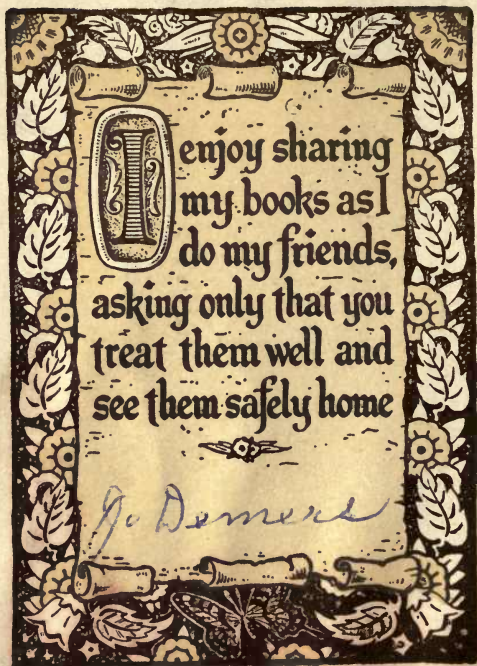 I enjoy sharing
my books as I
do my friends,
asking only that you
treat them well and
see them safely home
Jo Demers